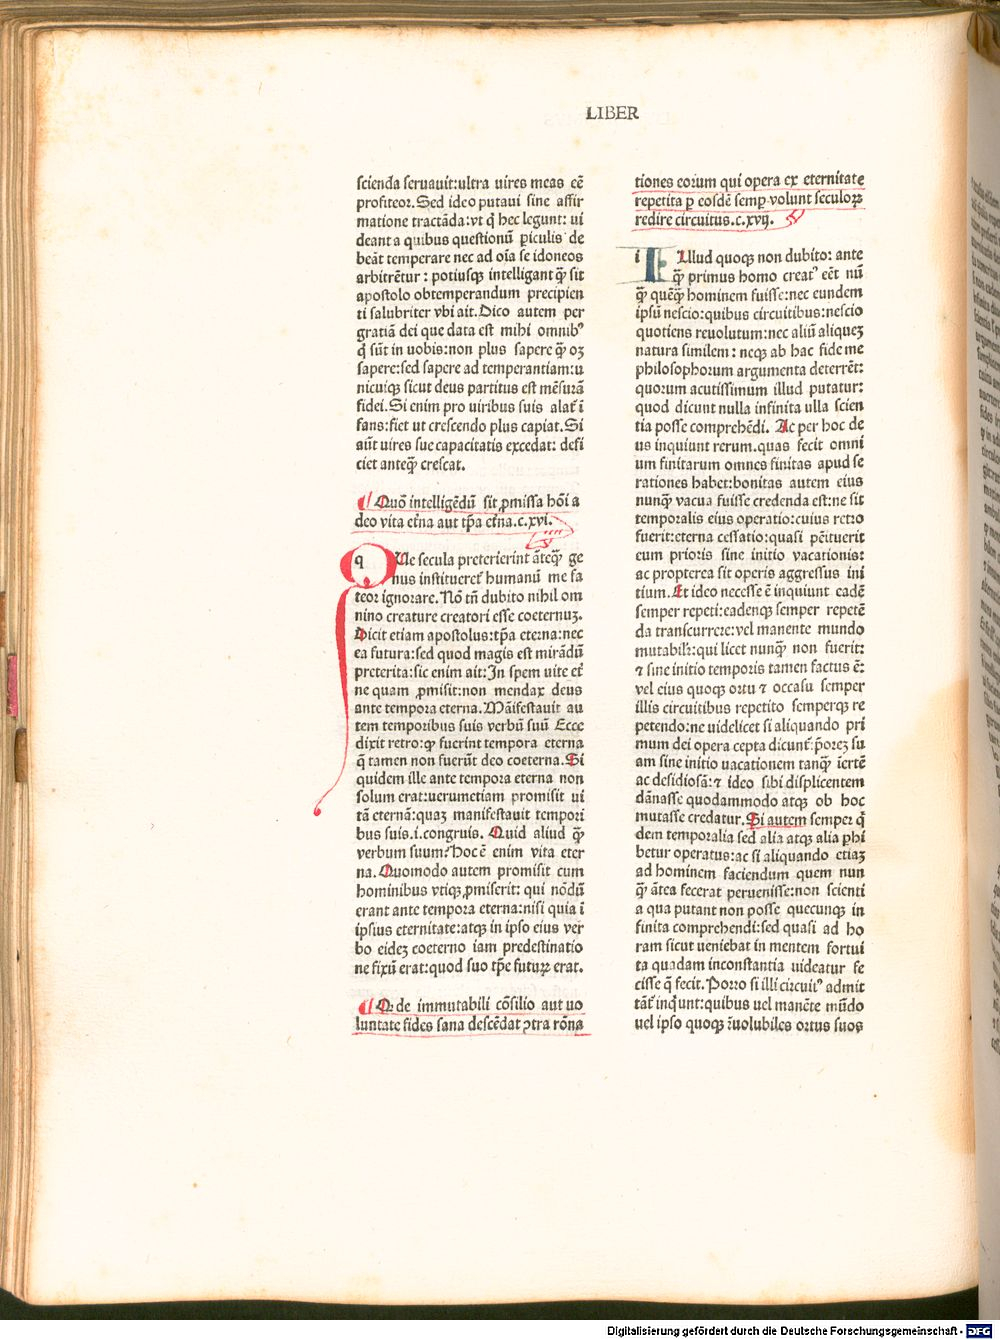 LIBER
scienda seruauit:ultra uires meas eē
profiteor. Sed ideo putaui sine affir
matione tractāda:vt q̇ hec legunt: ui
deant a quibus questionū ꝑiculis de
beāt temperare nec ad oīa se idoneos
arbitrētur: potiusqꝫ intelligant q̄ꝫ sit
apostolo obtemperandum precipien
ti salubriter vbi ait. Dico autem per
gratiā dei que data est mihi omnibꝰ
q̇ sūt in uobis:non plus sapere q̄ꝫ oꝫ
sapere:sed sapere ad temperantiam:u
nicuiqꝫ sicut deus partitus est mēsurā
fidei. Si enim pro uiribus suis alat̄ ī
fans:fiet ut crescendo plus capiat. Si
aūt uires sue capacitatis excedat: defi
ciet anteq̄ꝫ crescat.
Quō intelligēdū sit ꝓmissa hoī a
deo vita et̄na aut tꝑa et̄na.c.xvi.
q Ue secula preterierint ānteq̄ꝫ ge
nus institueret̄ humanū me fa
teor ignorare. Nō tn̄ dubito nihil om
nino creature creatori esse coeternuꝫ.
Dicit etiam apostolus:tꝑa eterna:nec
ea futura:sed quod magis est mirādū
preterita:sic enim ait: In spem uite et̄
ne quam ꝓmisit:non mendax deus
ante tempora eterna. Māifestauit au
tem temporibus suis verbū suū Ecce
dixit retro:qꝙ fuerint tempora eterna
q̄ tamen non fuerūt deo coeterna. Si
quidem ille ante tempora eterna non
solum erat:uerumetiam promisit ui
tā eternā:quaꝫ manifestauit tempori
bus suis.i.congruis. Quid aliud q̄ꝫ
verbum suum? hoc ē enim vita eter
na. Quomodo autem promisit cum
hominibus vtiqꝫ ꝓmiserit: qui nōdū
erant ante tempora eterna:nisi quia ī
ipsius eternitate:atqꝫ in ipso eius ver
bo eideꝫ coeterno iam predestinatio
ne fixū erat:quod suo tꝑe futurꝝ erat.
De immutabili cōsilio aut uo
luntate fides sana descēdat ꝯtra rōna
tiones eorum qui opera ex eternitate
repetita ꝑ eosdē semꝑ volunt seculoꝝ
redire circuitus.c.xvij.
i Illud quoqꝫ non dubito: ante
q̄ꝫ primus homo creatꝰ eēt nū
q̄ꝫ quēq̄ꝫ hominem fuisse:nec eundem
ipsū nescio:quibus circuitibus:nescio
quotiens reuolutum:nec aliū aliqueꝫ
natura similem: neqꝫ ab hac fide me
philosophorum argumenta deterrēt:
quorum acutissimum illud putatur:
quod dicunt nulla infinita ulla scien
tia posse comprehēdi. Ac per hoc de
us inquiunt rerum.quas fecit omni
um finitarum omnes finitas apud se
rationes habet:bonitas autem eius
nunq̄ꝫ vacua fuisse credenda est:ne sit
temporalis eius operatio:cuius retro
fuerit:eterna cessatio:quasi pēituerit
eum prioris sine initio vacationis:
ac propterea sit operis aggressus ini
tium. Et ideo necesse ē inquiunt eadē
semper repeti:eadenqꝫ semper repetē
da transcurrere:vel manente mundo
mutabilr̄:qui licet nunq̄ꝫ non fuerit:
⁊ sine initio temporis tamen factus ē:
vel eius quoqꝫ ortu ⁊ occasu semper
illis circuitibus repetito semperqꝫ re
petendo:ne uidelicet si aliquando pri
mum dei opera cepta dicunt̄:ꝑoreꝫ su
am sine initio uacationem tanq̄ꝫ iertē
ac desidiosā:⁊ ideo sibi displicentem
dānasse quodammodo atqꝫ ob hoc
mutasse credatur. Si autem semper q̄
dem temporalia sed alia atqꝫ alia ꝑhi
betur operatus:ac si aliquando etiaꝫ
ad hominem faciendum quem nun
q̄ꝫ ātea fecerat peruenisse:non scienti
a qua putant non posse quecunqꝫ in
finita comprehendi:sed quasi ad ho
ram sicut ueniebat in mentem fortui
ta quadam inconstantia uideatur fe
cisse q̄ fecit. Porro si illi circuitꝰ admit
tāt̄ inq̇unt:quibus uel manēte mūdo
uel ipso quoqꝫ r̄uolubiles ortus suos
Digitalisierung gefördert durch die Deutsche Forschungsgemeinschaft - DFG